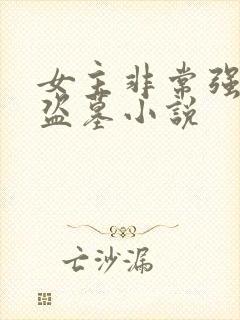 女主非常强
盗墓小说
亡沙漏